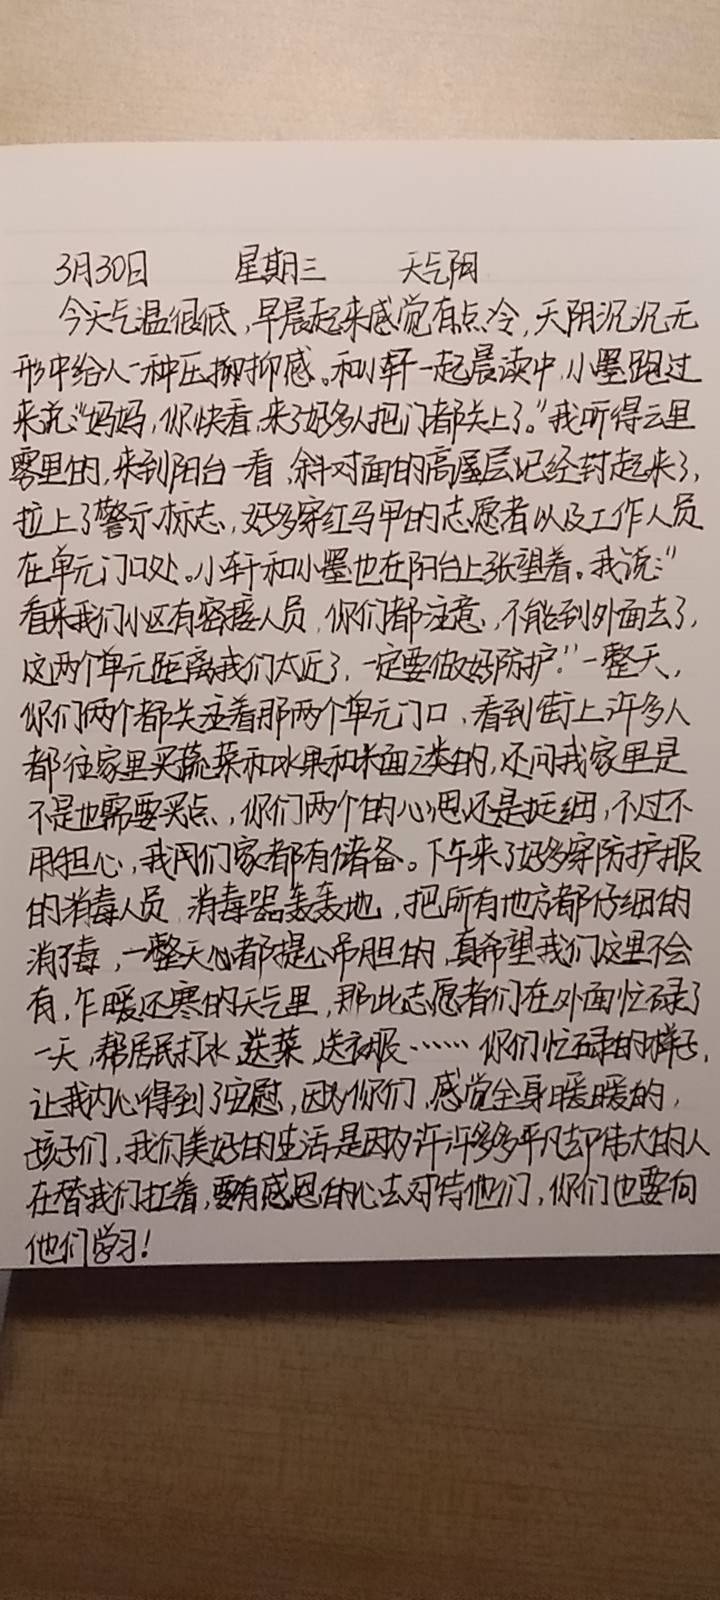 3月30日 星期三 天气阴
今天气温很低,早晨起来感觉有点冷,天阴沉沉无
形中给人一种压抑感。和小轩一起晨读中,小墨跑过
来说:“妈妈,你快看,来了好多人把门都关上了。”我听得云里
雾里的,来到阳台一看,斜对面的高层已经封起来了,
拉上了警示标志,好多穿红马甲的志愿者以及工作人员
在单元门口处。小轩和小墨也在阳台上张望着。我说:“
看来我们小区有密接人员,你们都注意,不能到外面去了,
这两个单元距离我们太近了,一定要做好防护!”一整天,
你们两个都关注着那两个单元门口,看到街上许多人
都往家里买蔬菜和水果和米面之类的,还问我家里是
不是也需要买点,你们两个的心思还是挺细,不过不
用担心,我们家都有储备。下午来了好多穿防护服
的消毒人员,消毒器轰轰地,把所有地方都仔细的
消了毒,一整天心都提心吊胆的,真希望我们这里不会
有,乍暖还寒的天气里,那些志愿者们在外面忙碌了
一天,帮居民打水,送菜,送衣服……你们忙碌的样子,
让我内心得到了安慰,因为你们,感觉全身暖暖的,
孩子们,我们美好的生活是因为许许多多平凡却伟大的人
在替我们扛着,要有感恩的心去对待他们,你们也要向
他们学习!